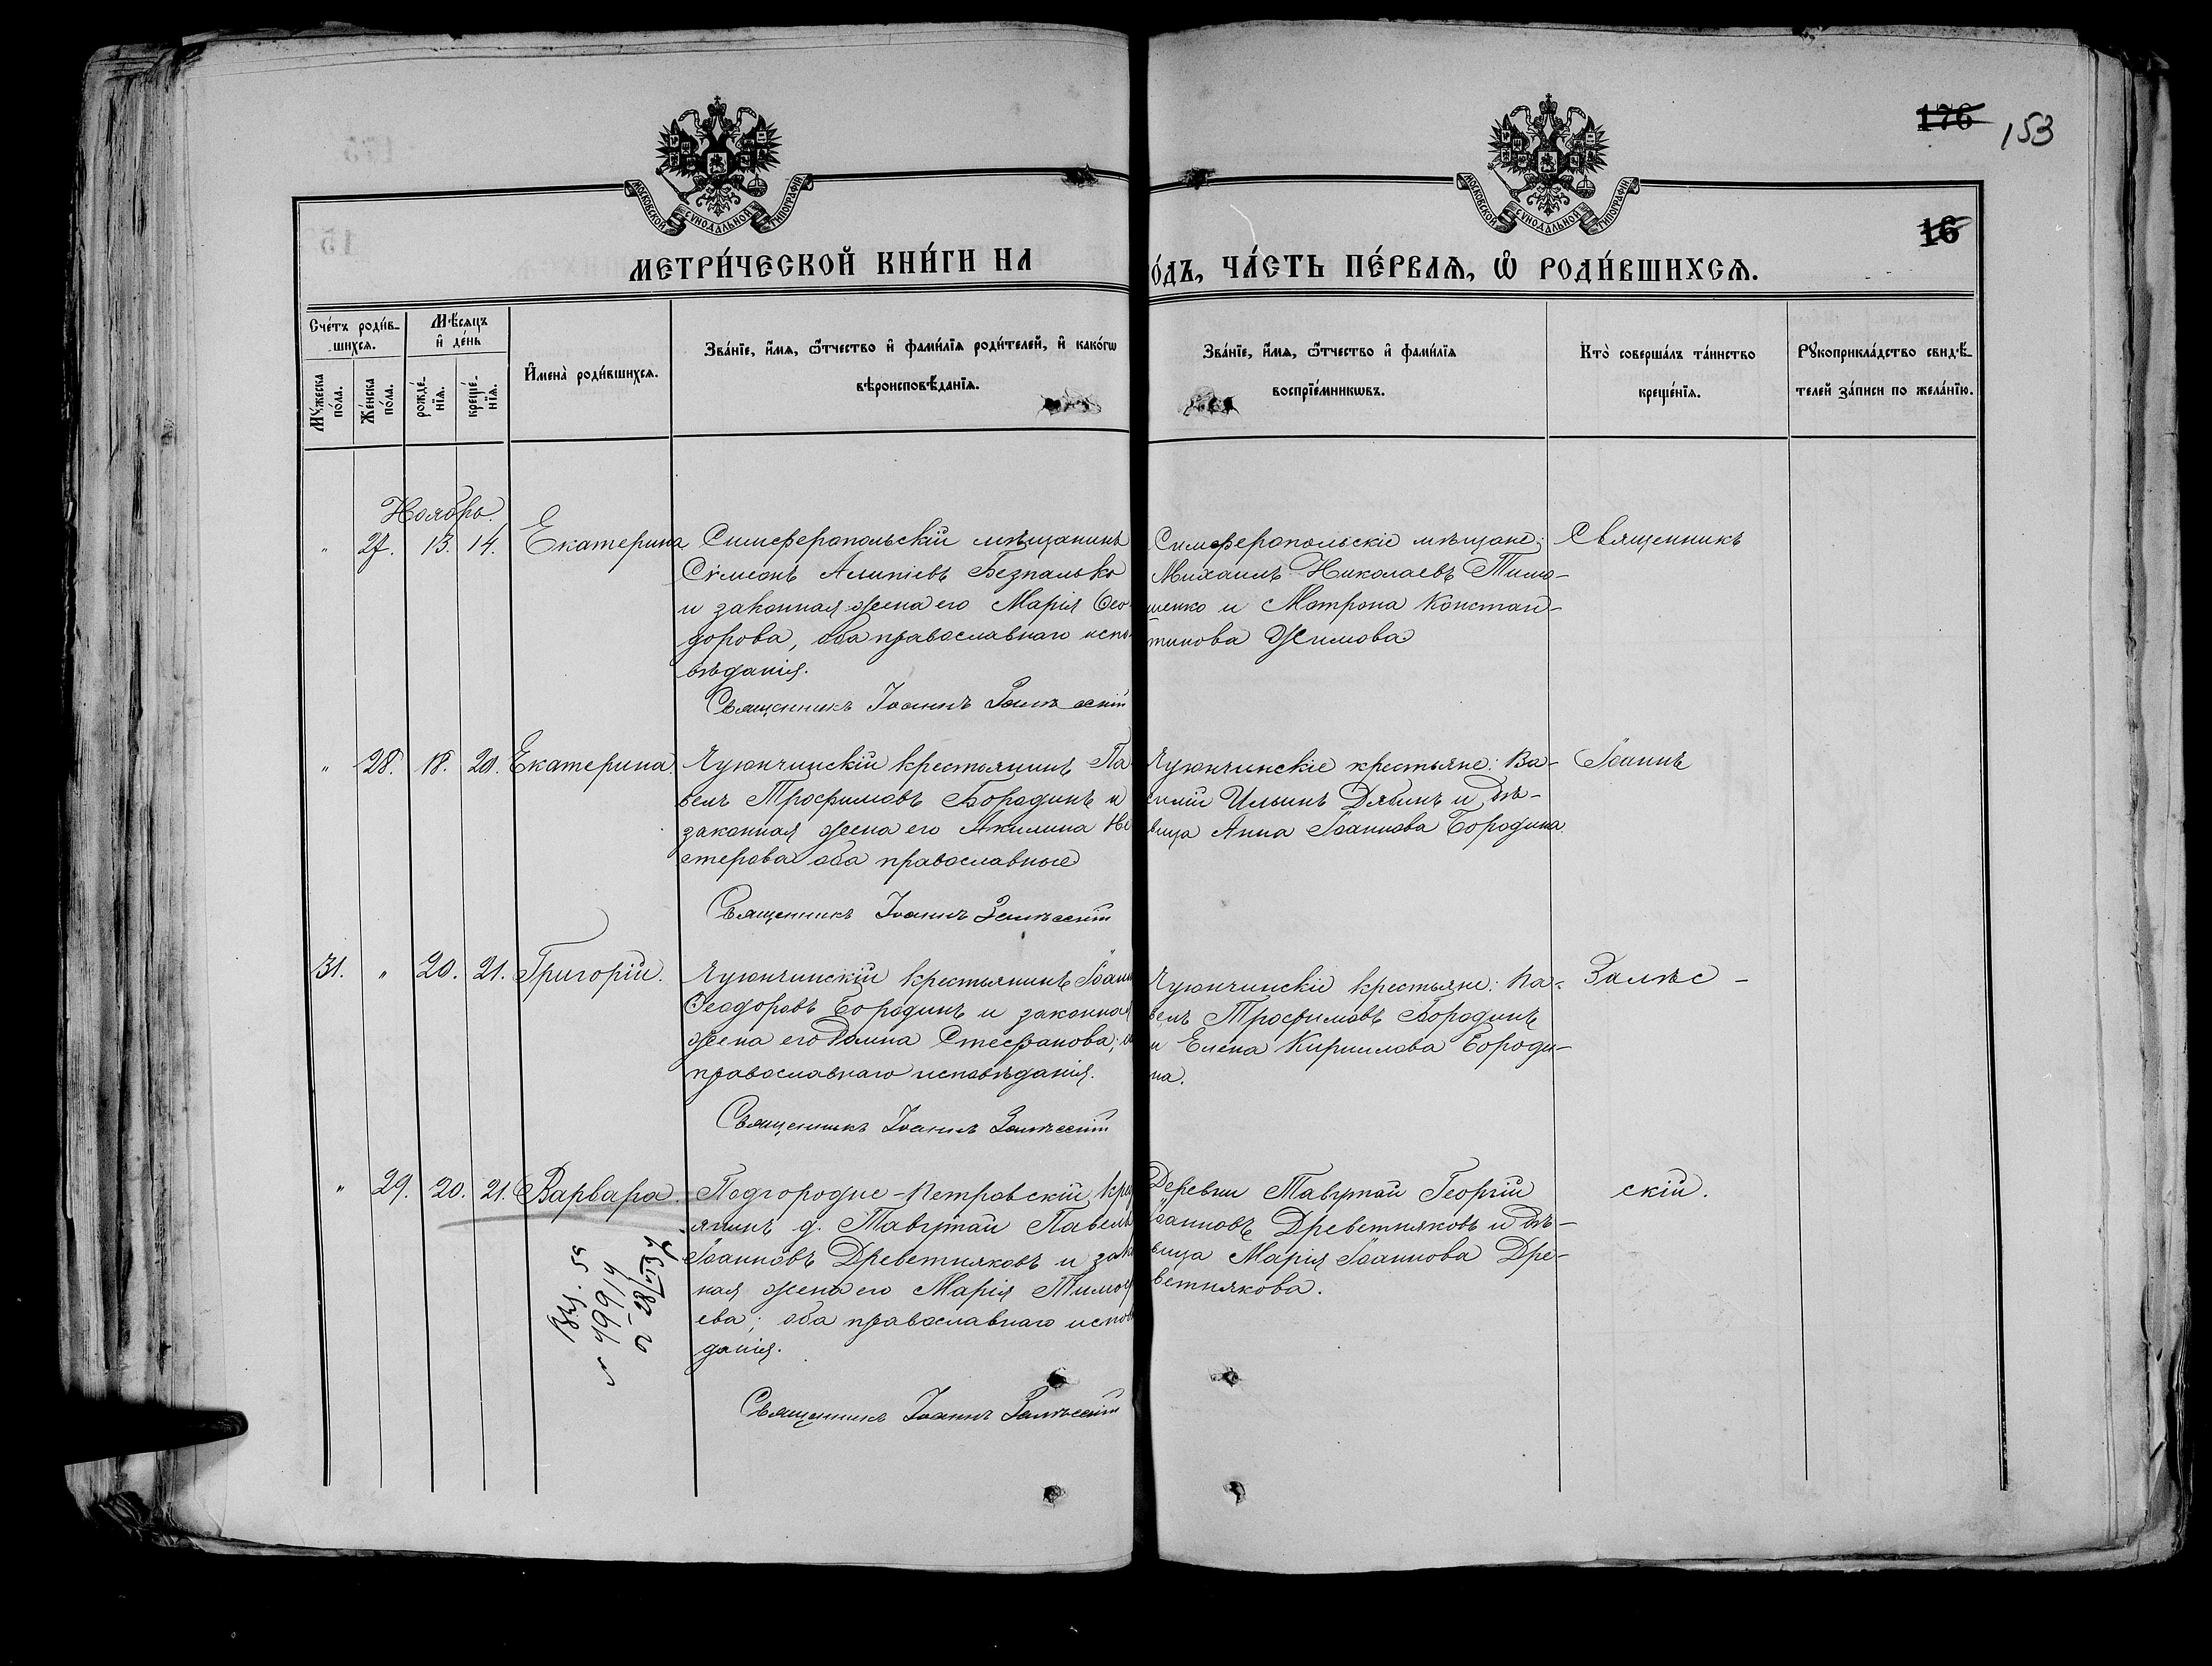 176 153
МОСКОВСКОЙ СѴНОДАЛЬНОЙ ТИПОГРАФІИ
МОСКОВСКОЙ СѴНОДАЛЬНОЙ ТИПОГРАФІИ
16
МЕТРИ́ЧЕСКОЙ КНИ́ГИ НА
О́ДЪ, ЧА́СТЬ ПЕ́РВАѦ, Ѡ҆ РОДИ́ВШИХСѦ.
Сче́тъ роди́в-
шихсѧ.
Мꙋ́жеска по́ла.
Же́нска по́ла.
Мѣ́сѧцъ и҆ де́нь
рожде́-нїѧ.
креще́-нїѧ.
И҆мена̀ роди́вшихсѧ.
Зва́нїе, и҆́мѧ, ѻ҆́тчество и҆ фами́лїѧ роди́телей, и҆ како́гѡ
вѣроисповѣ́данїѧ.
Зва́нїе, и҆́мѧ, ѻ҆́тчество и҆ фами́лїѧ
воспрїе́мникѡвъ.
Кто̀ соверша́лъ та́инство
креще́нїѧ.
Рꙋкоприкла́дство свидѣ́-
телей за́писи по жела́нїю.
Ноябрь.
" 27. 13. 14. Екатерина
Симферопольскій мѣщанинъ
Сѵмеонъ Алипіевъ Безпалько
и законная жена его Марія Ѳео-
дорова, оба православнаго испо-
вѣданія.
Священникъ Іоаннъ Залѣсскій
Симферопольскіе мѣщане:
Михаилъ Николаевъ Тимо-
шенко и Матрона Констан-
тинова
Священникъ
" 28. 18. 20. Екатерина.
Чуюнчинскій крестьянинъ Па-
велъ Трофимовъ Бородинъ и
законная жена его Акилина Не
стерова оба православные
Священникъ Іоаннъ Залѣсскій
Чуюнчинскіе крестьяне: Ва-
силій Ильинъ Дябинъ и дѣ-
вица Анна Іоаннова Бородина
Іоаннъ
31. " 20. 21. Григорій.
Чуюнчинскій крестьянинъ Іоанн
Ѳеодоровъ Бородинъ и законная
жена его Домна Стефанова;
православнаго исповѣданія.
Священникъ Іоаннъ Залѣсскій
Чуюнчинскіе крестьяне: Па-
велъ Трофимовъ Бородинъ
и Елена Кириллова Бороди-
на.
Залѣс-
" 29. 20. 21. Варвара.
Подгородне-Петровскій крест
янинъ д. Тавгутай Павелъ
Іоанновъ Древетняковъ и зако
ная жена его Марія Тимоѳ
ева; оба православнаго исповѣ
данія.
Священникъ Іоаннъ Залѣсскій
Деревни Тавгутай Георгій
Іоанновъ Древетняковъ и дѣ-
вица Марія Іоаннова Дре-
ветнякова.
скій.